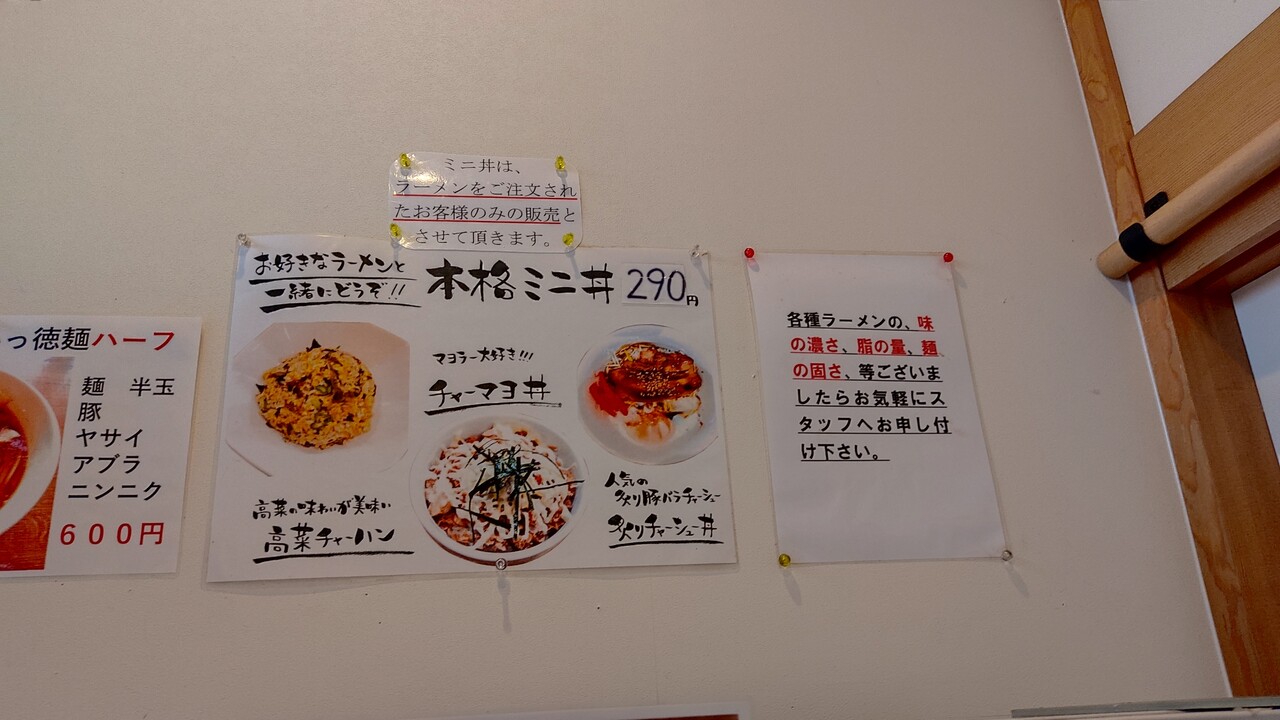 ミニ丼は、
ラーメンをご注文され
たお客様のみの販売と
させて頂きます。
お好きなラーメンと
一緒にどうぞ!!
本格ミニ丼 290円
マヨラー大好き!!!
チャーマヨ丼
高菜の味わいが美味い
高菜チャーハン
人気の
炙り豚バラチャーシュー
炙りチャーシュー丼
っ徳麺ハーフ
麺 半玉
豚
ヤサイ
アブラ
ニンニク
600円
各種ラーメンの、味
の濃さ、脂の量、麺
の固さ、等ございま
したらお気軽にス
タッフへお申し付
け下さい。